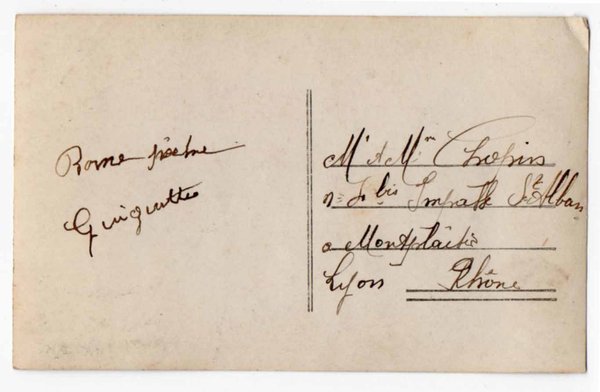 Bonne fête
Guiguitte
Mr et Mme Chopin
n= 7 bis Impasse St Alban
a Montplaisir
Lyon Rhône